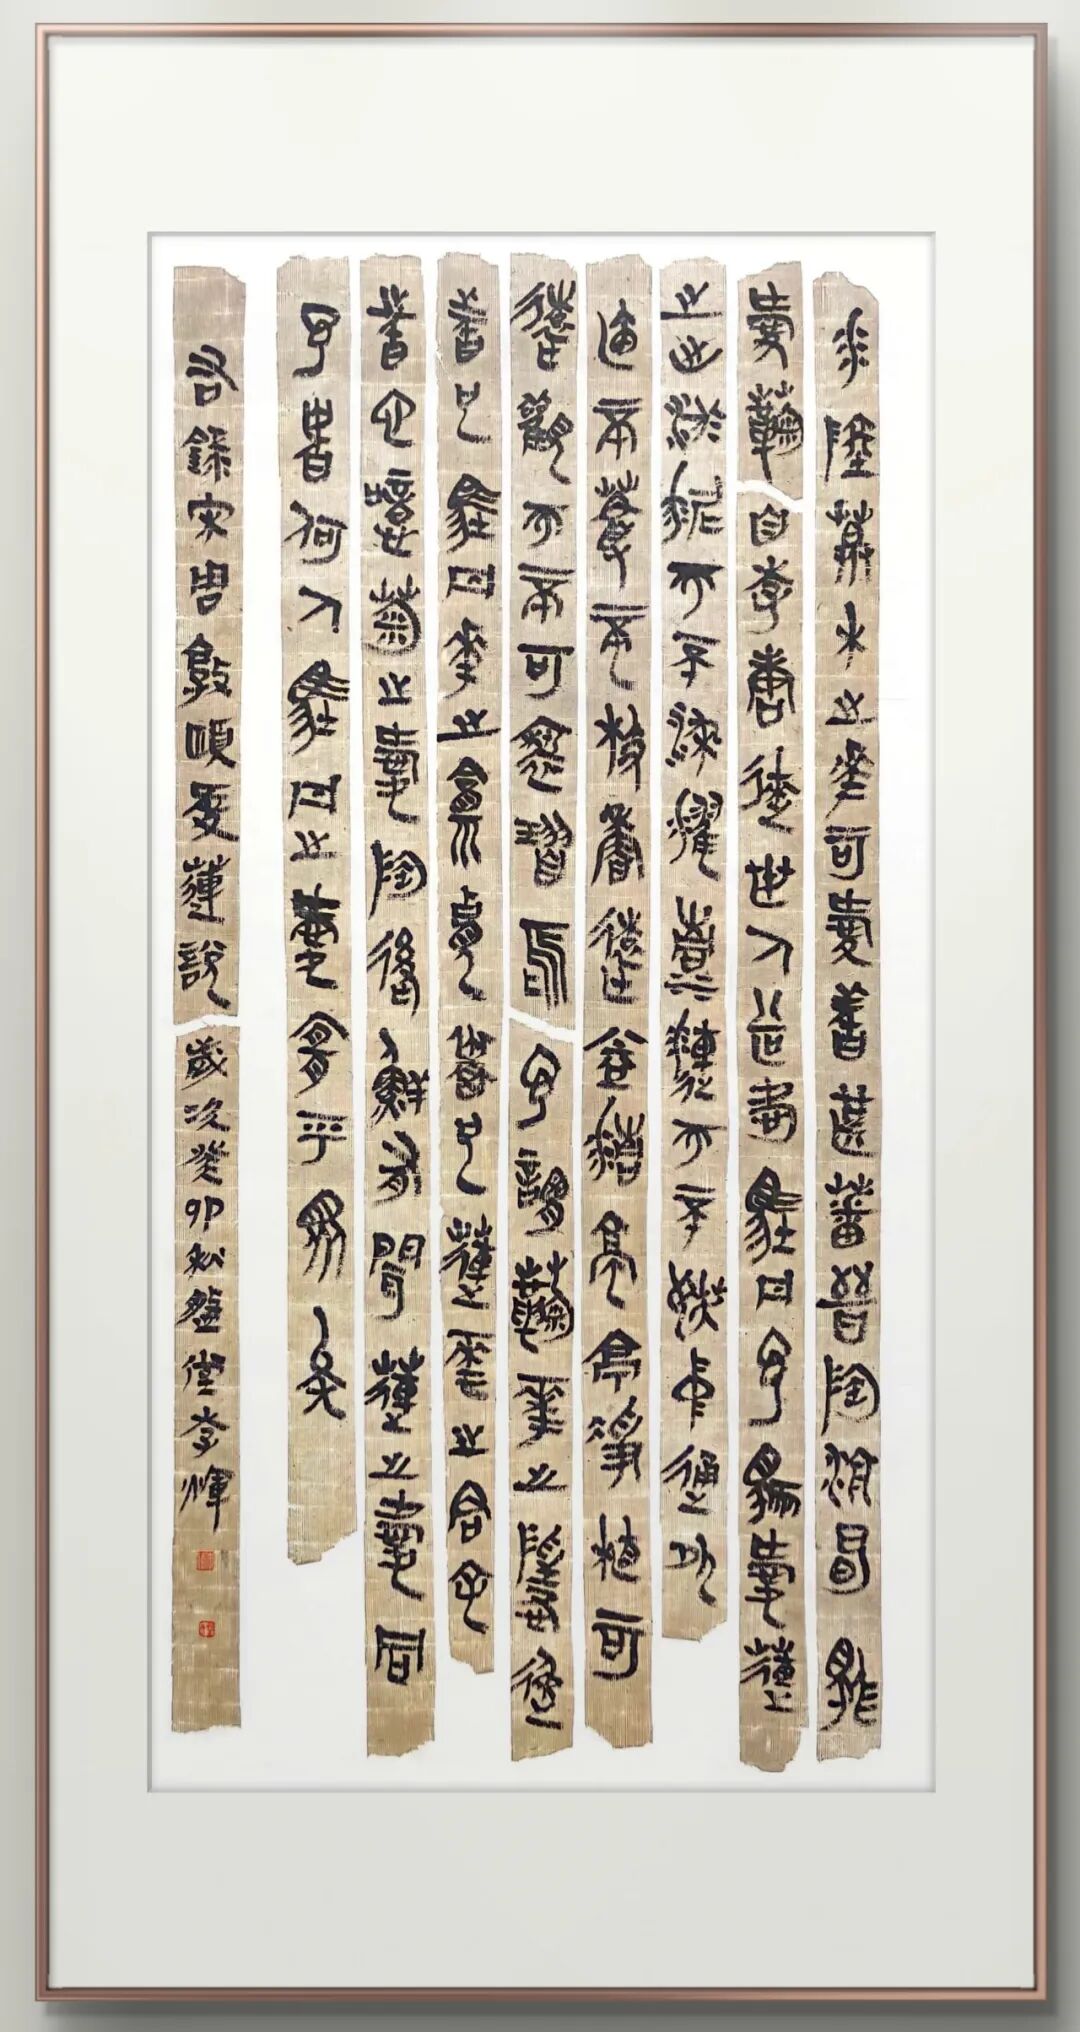 水陸草木之花可愛者甚蕃晉陶淵明獨
愛菊自李唐來世人甚愛牡丹予獨愛蓮
之出淤泥而不染濯清漣而不妖中通外
直不蔓不枝香遠益清亭亭淨植可
遠觀而不可褻玩焉予謂菊花之隱逸
者也牡丹花之富貴者也蓮花之君子
者也噫菊之愛陶後鮮有聞蓮之愛同
予者何人牡丹之愛宜乎眾矣
右錄宋周敦頤愛蓮說歲次癸卯秋堂李輝